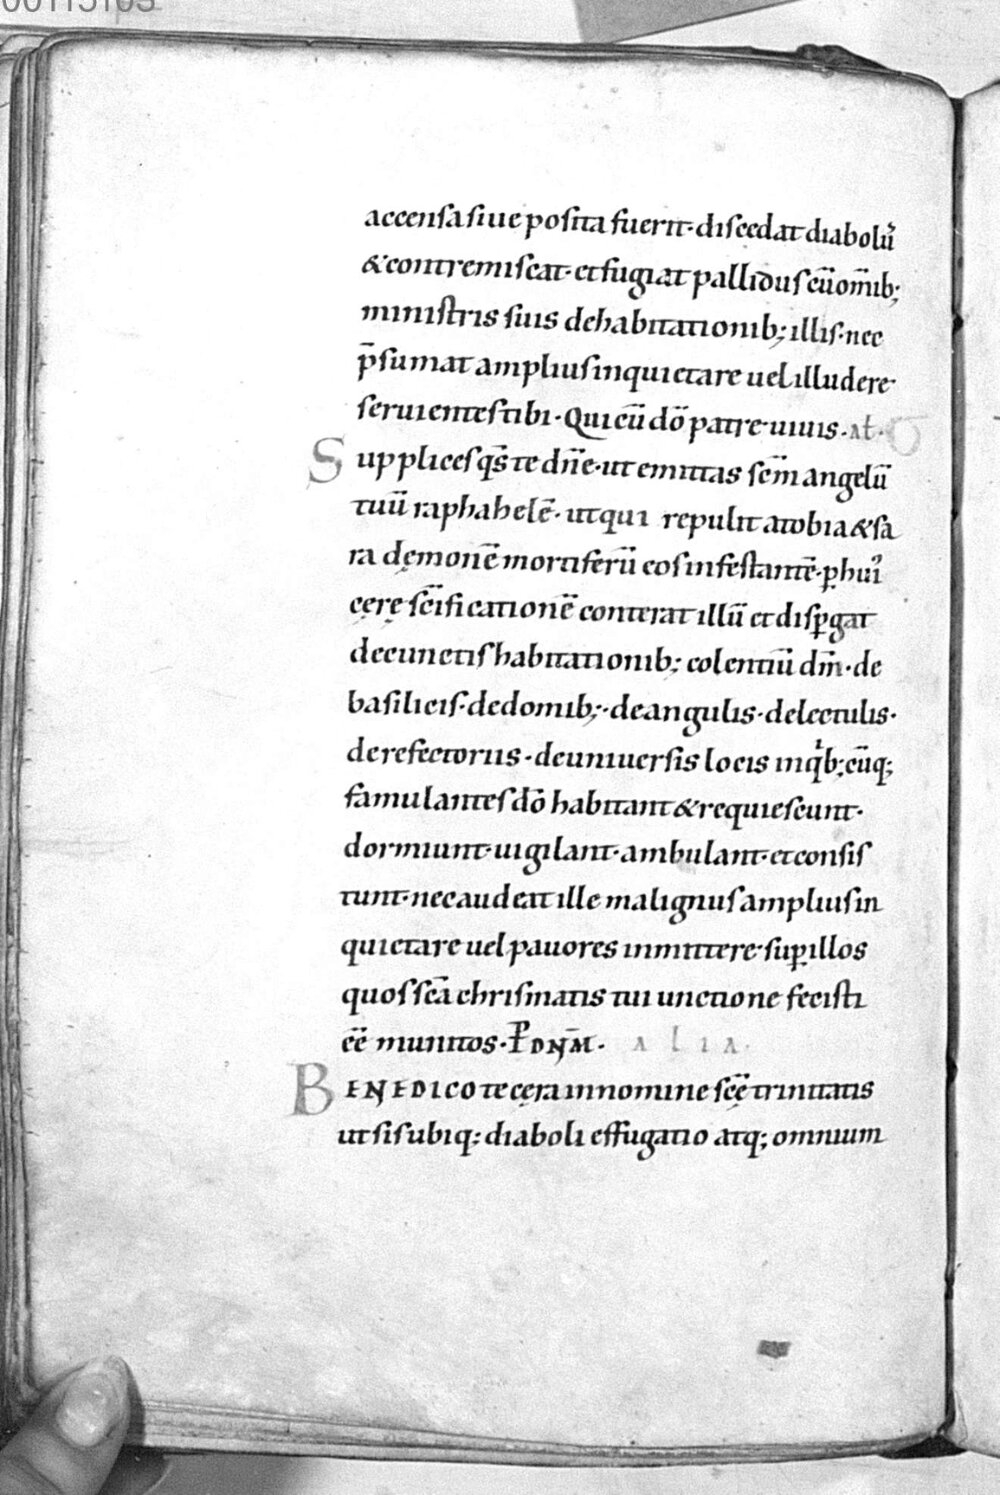 00115103
accensa siue posita fuerit· discedat diabolus
& contremiscat· et fugiat pallidus cū om̄ib;
ministris suis de habitationib; illis· nec
p̄sumat amplius inquietare uel illudere·
seruientes tibi· Qui cū dō patre· uiuis· AŁ·
Supplices qs̄ te dn̄e· ut emittas sc̄m angelū
tuū raphahelē· ut qui repulit a tobia & sa
ra dęmonē mortiferū eos infestantē· ꝑ hui᾽
cęrę sc̄ificationē conterat illū et disꝑgat
de cunctis habitationib; colentiū dm̄· de
basilicis· de domib;· de angulis· de lectulis·
de refectoriis· de uniuersis locis in qͥb; cūq;
famulantes dō habitant & requiescunt·
dormiunt· uigilant· ambulant· et consis
tunt· nec audeat ille malignus amplius in
quietare uel pauores inmittere· suꝑ illos
quos sc̄a chrismatis tui unctione fecisti
eē munitos· P̄ DN̄M· ALIA·
BENEDICO te cęra in nomine sc̄ę trinitatis
ut sis ubiq; diaboli effugatio atq; omnium